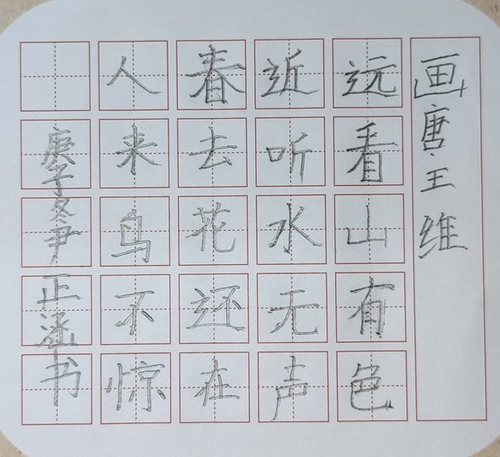 画唐·王维
远看山有色
近听水无声
春去花还在
人来鸟不惊
庚子冬尹正涵书